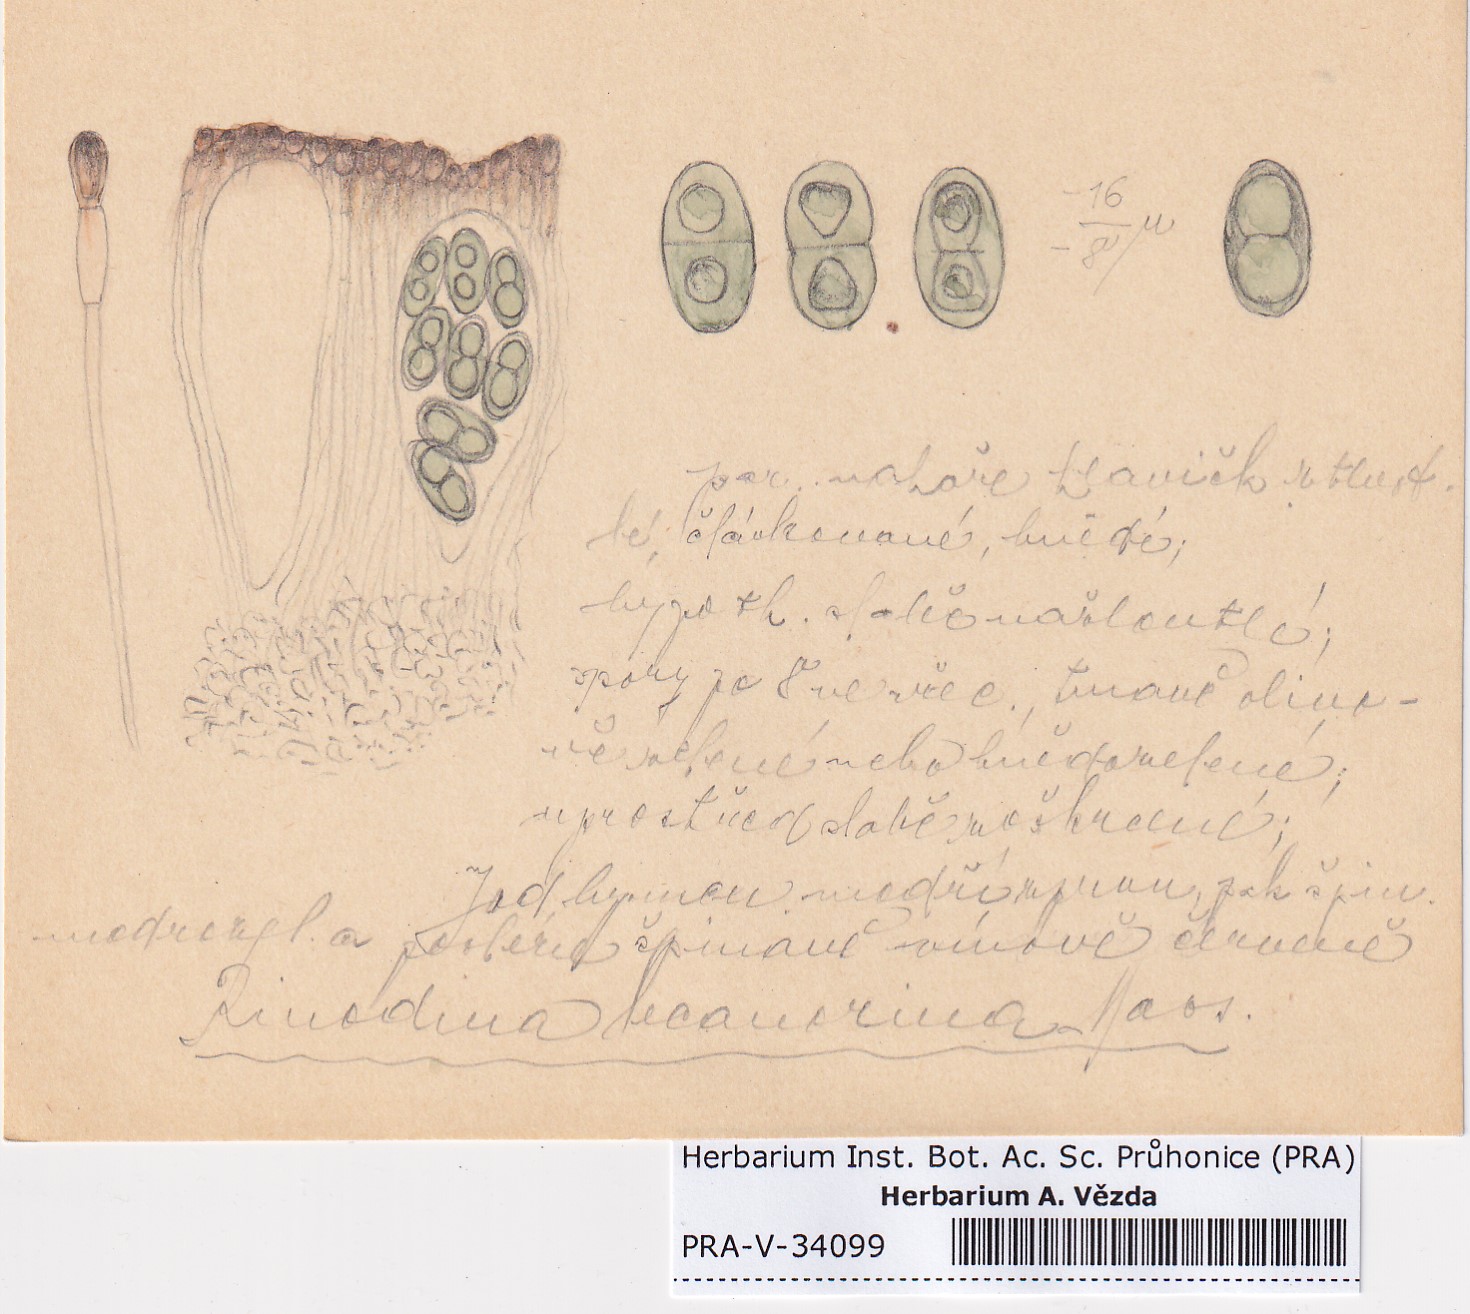 -16
-8/μ
par. nahoře hlavičk. ztlust-
lé, článkované, hnědé;
hypoth. slabě nažloutlé;
spory po 8 ve vřec., tmavě olivo-
vě zelené nebo hnědozelené;
uprostřed slabě zaškrcené;
Jod hymen. modří zprvu, pak špin.
modrozel. a posléze špinavě vínově červeně
Rinodina lecanorina Mass.
Herbarium Inst. Bot. Ac. Sc. Průhonice (PRA)
Herbarium A. Vězda
PRA-V-34099